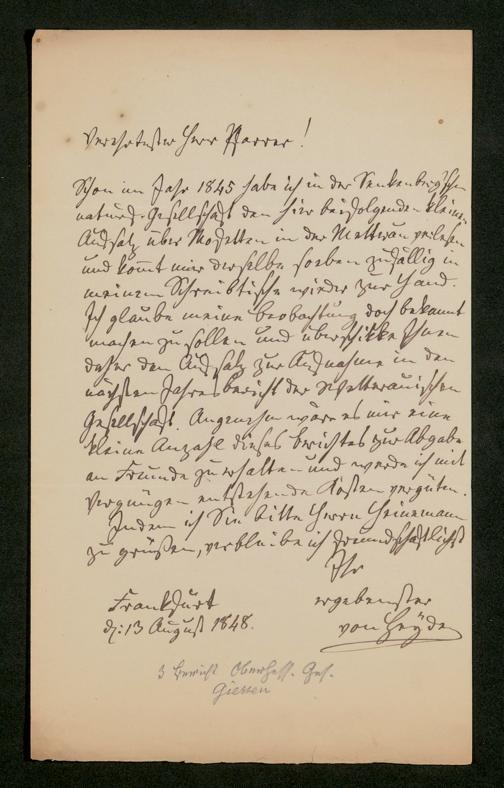 Verehrtester Herr Pfarrer!
Schon im Jahr 1845 habe ich in der Senkenbergischen
naturf. Gesellschaft den hier beifolgenden kleinen
Aufsatz über in der verlesen
und kommt mir derselbe soeben zufällig in
meinem Schreibtische wieder zur Hand.
Ich glaube meine Beobachtung doch bekannt
machen zu sollen und überschicke Ihnen
daher den Aufsatz zur Aufnahme in den
nächsten Jahresbericht der Wetterauischen
Gesellschaft. Angenehm wäre es mir eine
kleine Anzahl dieses Berichtes zur Abgabe
an Freunde zu erhalten und werde ich mit
Vergnügen entstehende Kosten vergüten.
Indem ich Sie bitte Herrn Heinemann
zu grüßen, verbleibe ich freundschaftlichst
Ihr
ergebenster
von Heyden
Frankfurt
d. 13 August 1848.
3 Bericht Oberhess. Ges.
Giessen